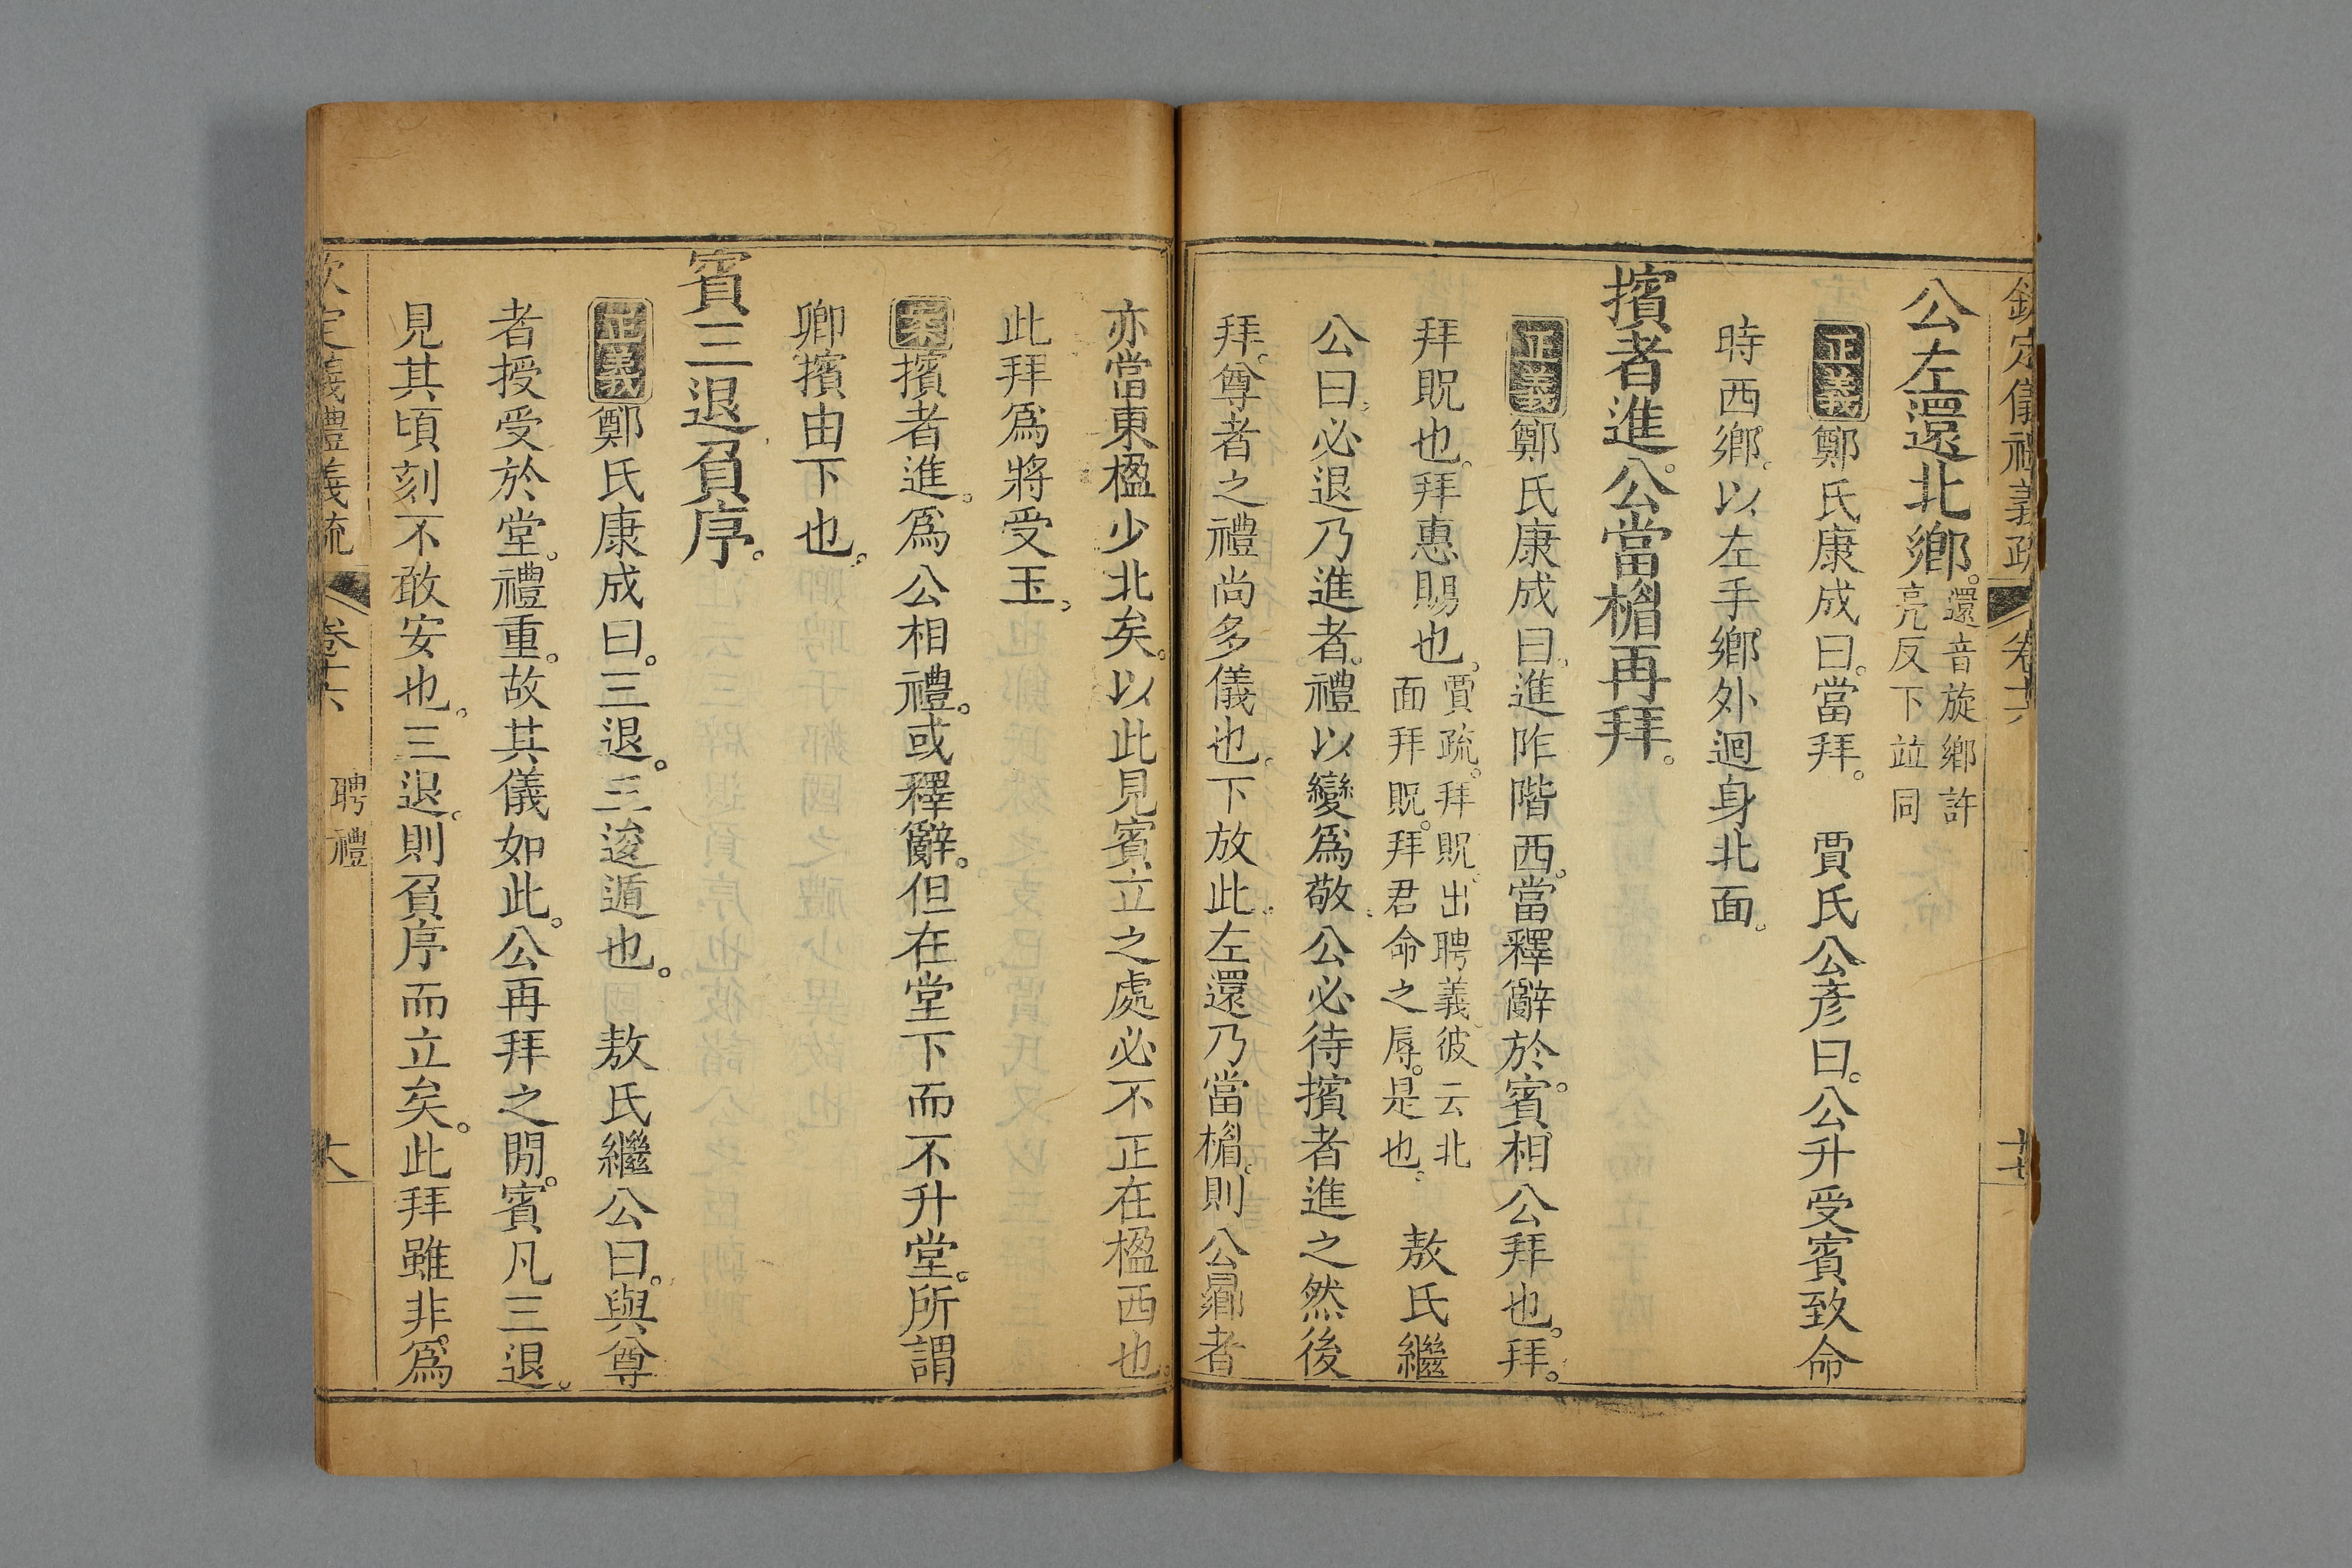 欽定儀禮義疏 卷十六 十七
公左還北鄉。還音旋鄉許亮反下竝同
正義鄭氏康成曰。當拜。 賈氏公彥曰。公升受賓致命
時西鄉。以左手鄉外迴身北面。
擯者進。公當楣再拜。
正義鄭氏康成曰。進阼階西。當釋辭於賓。賓相公拜也。拜。
拜貺也。拜惠賜也。賈疏。拜貺。出聘義。彼云北面拜貺。拜君命之辱。是也。 敖氏繼
公曰。必退乃進者。禮以變爲敬。公必待擯者進之然後
拜。尊者之禮尚多儀也。下放此。左還乃當楣。則公曏鄉者
亦當東楹少北矣。以此見賓立之處必不正在楹西也。
此拜爲將受玉。
案擯者進。爲公相禮。或釋辭。但在堂下而不升堂。所謂
卿擯由下也。
賓三退負序。
正義鄭氏康成曰。三退。三逡遁也。 敖氏繼公曰。與尊
者授受於堂。禮重。故其儀如此。公再拜之閒。賓凡三退。
見其頃刻不敢安也。三退。則負序而立矣。此拜雖非。爲
欽定儀禮義疏 卷十六 聘禮 十八